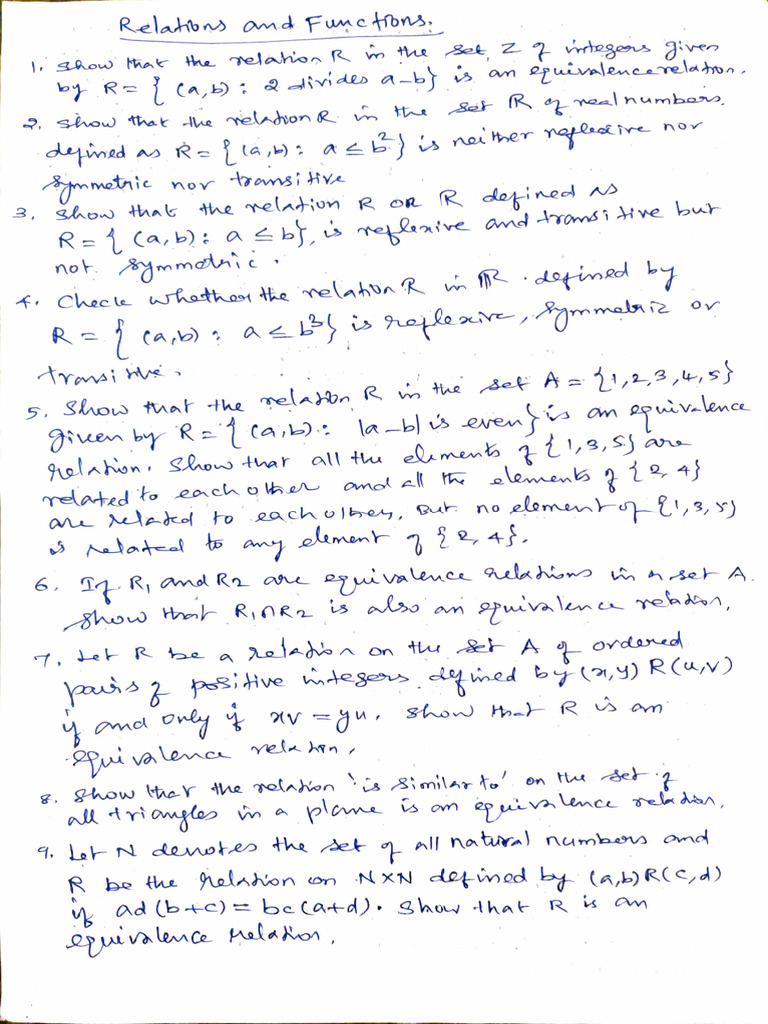 Relations and Functions.
1. Show that the relation R in the set Z of integers given
by R = { (a,b) : 2 divides a-b} is an equivalence relation.
2. Show that the relation R in the set ℝ of real numbers.
defined as R = { (a,b) : a ≤ b²} is neither reflexive nor
symmetric nor transitive
3. Show that the relation R OR R defined as
R = { (a,b) : a ≤ b}, is reflexive and transitive but
not symmetric.
4. Check whether the relation R in ℝ . defined by
R = { (a,b) : a ≤ b³} is reflexive, symmetric or
transitive.
5. Show that the relation R in the set A = {1,2,3,4,5}
given by R = { (a,b) : |a-b| is even} is an equivalence
relation. Show that all the elements of {1,3,5} are
related to each other and all the elements of {2,4}
are related to each other, But no element of {1,3,5}
is related to any element of {2,4}.
6. If R₁ and R2 are equivalence relations in a set A.
show that R₁∩R2 is also an equivalence relation.
7. Let R be a relation on the set A of ordered
pairs of positive integers defined by (x,y) R (u,v)
if and only if xv = yu. Show that R is an
equivalence relation.
8. Show that the relation 'is similar to' on the set of
all triangles in a plane is an equivalence relation.
9. Let N denotes the set of all natural numbers and
R be the relation on N×N defined by (a,b)R(c,d)
if ad(b+c) = bc(a+d). Show that R is an
equivalence relation.